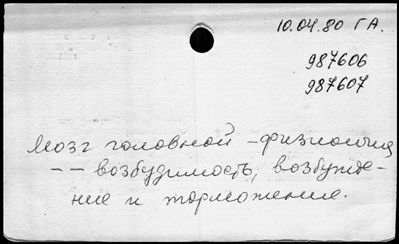 10.04.80 ГА.
987606
987607
Мозг головной - физиология
-- возбудимость, возбужде-
ние и торможение.